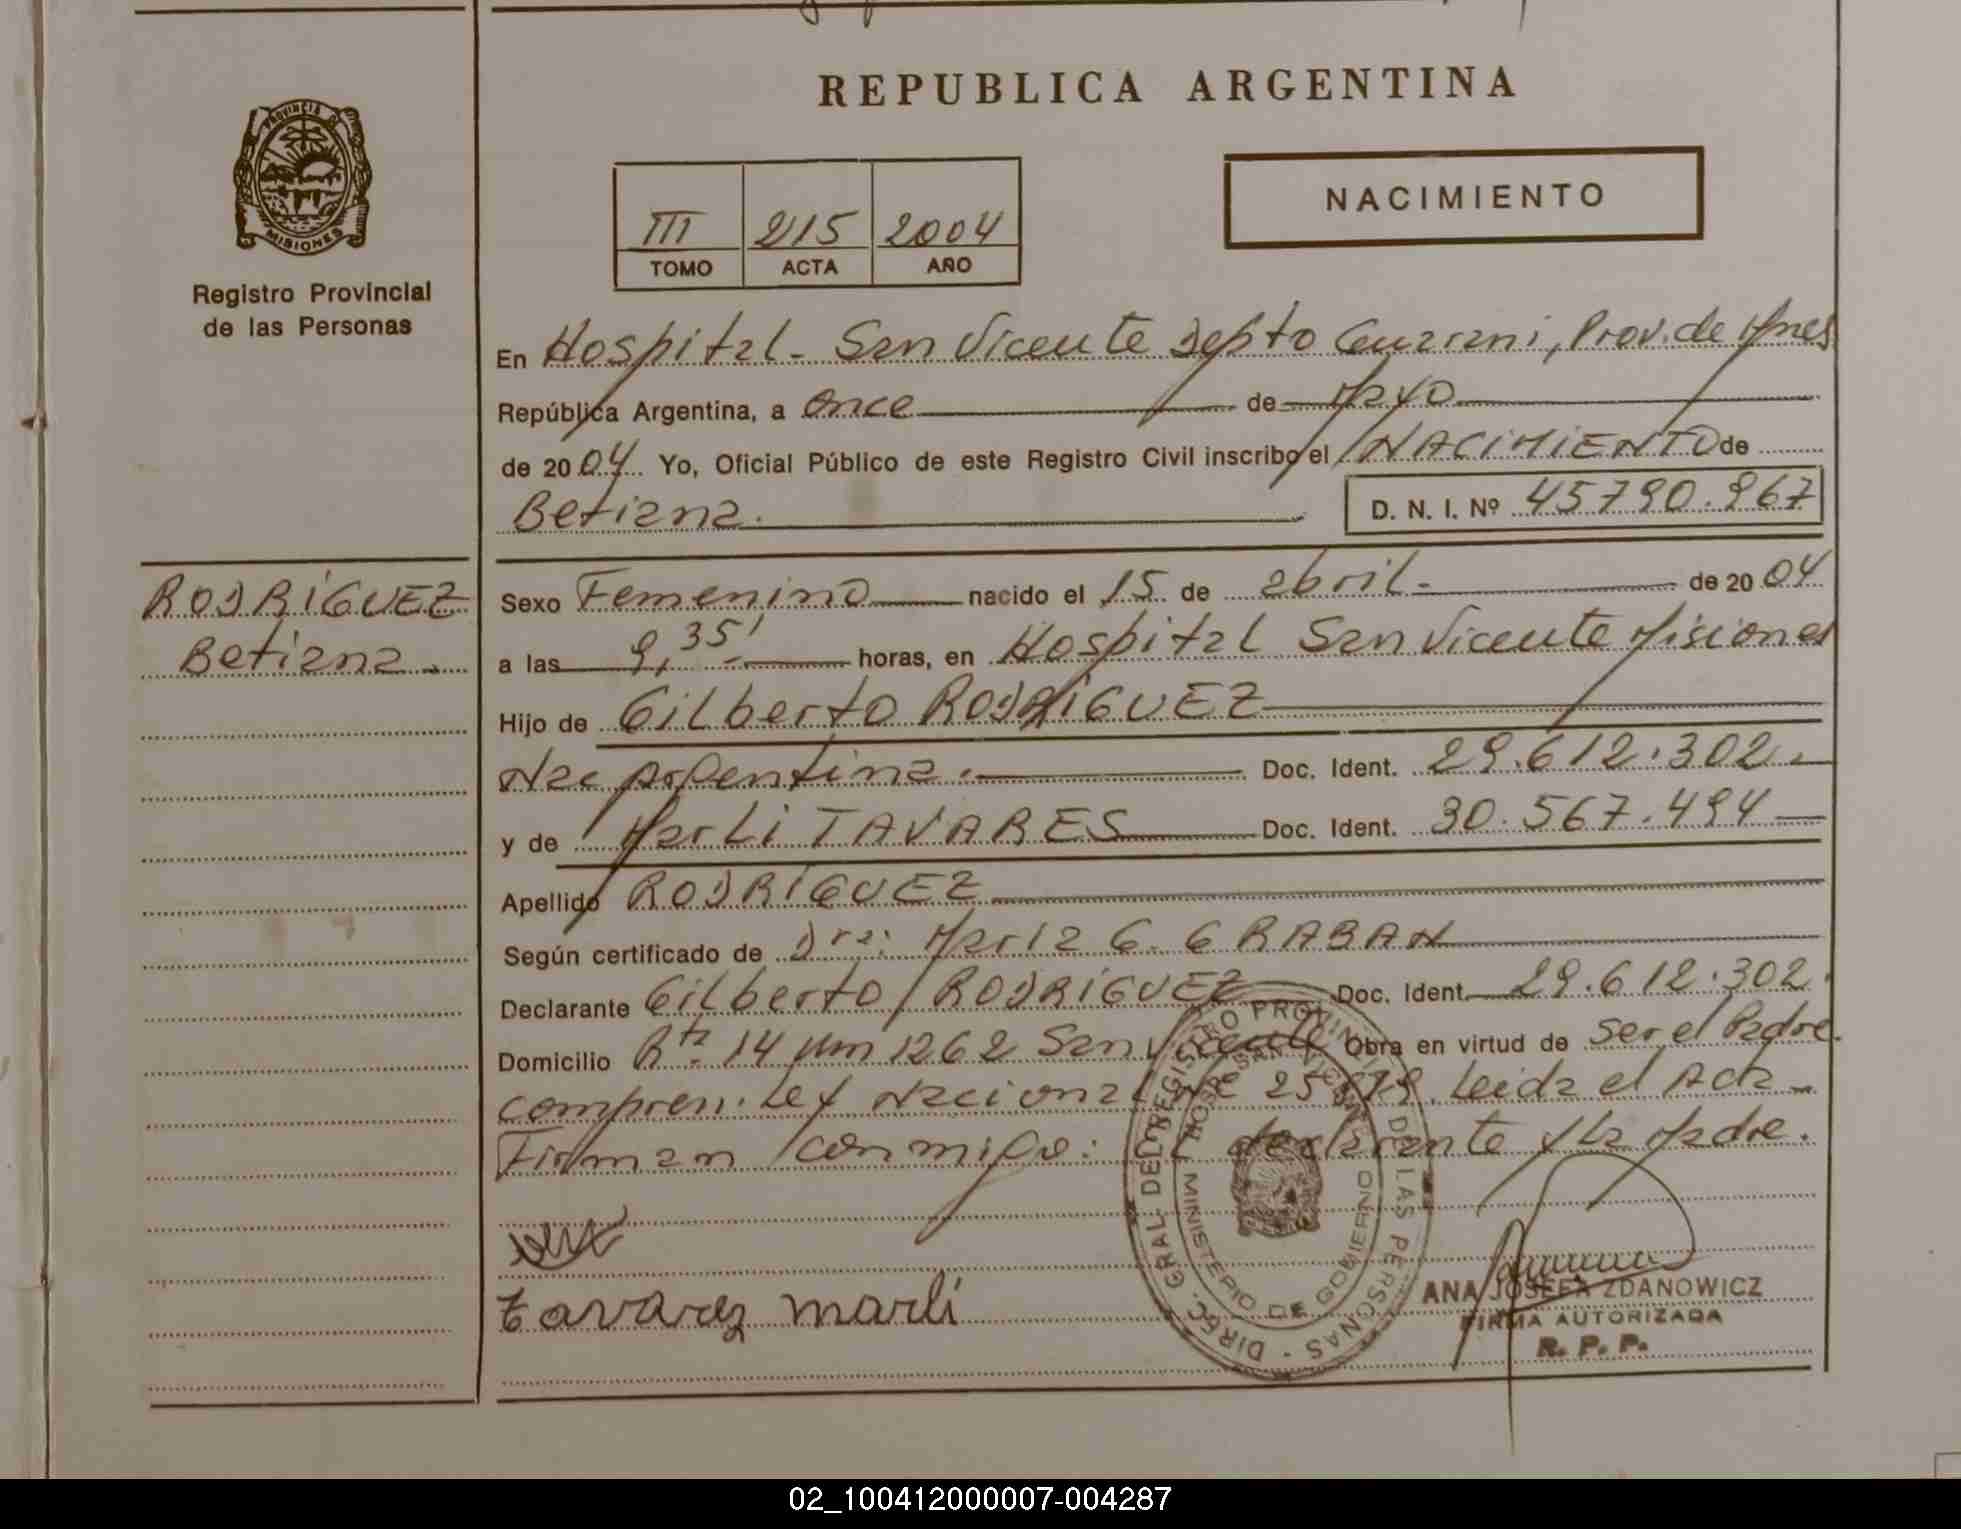 REPUBLICA ARGENTINA
PROVINCIA DE
MISIONES
Registro Provincial
de las Personas
III 215 2004
TOMO ACTA AÑO
NACIMIENTO
En Hospital - San Vicente Depto Guarani, Prov. de Mnes
República Argentina, a once de Mayo
de 2004 Yo, Oficial Público de este Registro Civil inscribo el NACIMIENTO de
Betiana. D. N. I. Nº 45790.967
RODRIGUEZ
Betiana.
Sexo Femenino nacido el 15 de abril - de 2004
a las 9,35' horas, en Hospital San Vicente Misiones
Hijo de Gilberto RODRIGUEZ
Nac Argentina. Doc. Ident. 29.612.302
y de Marli TAVARES Doc. Ident. 30.567.494
Apellido RODRIGUEZ
Según certificado de Dra: Maria G. GRABAN
Declarante Gilberto RODRIGUEZ Doc. Ident. 29.612.302.
Domicilio Rta. 14 Km 1262 San Vicente Obra en virtud de ser el Padre.
compren. Ley Nacional Leida el Acta
Firman conmigo: el declarante y la Madre.
DIREC. GRAL. DEL REGISTRO PROVINCIAL DE LAS PERSONAS -
MINISTERIO DE GOBIERNO
tavarez marli
ANA JOSEFA ZDANOWICZ
FIRMA AUTORIZADA
R. P. P.
02_100412000007-004287